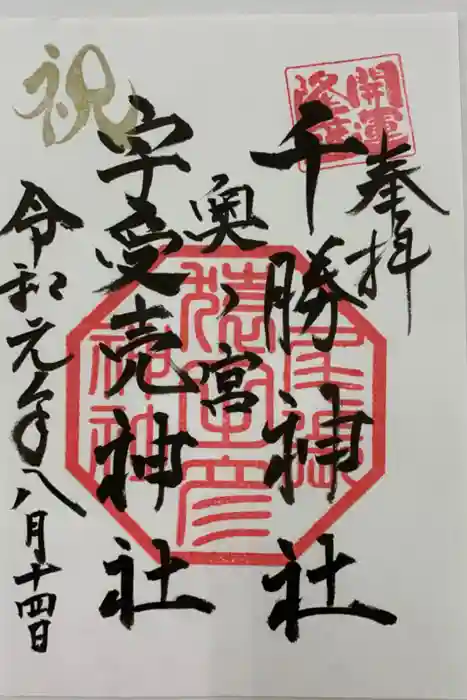 奉拝
開運
隆昌
千勝神社
奥ノ宮
宇受売神社
祝
令和元年八月十四日